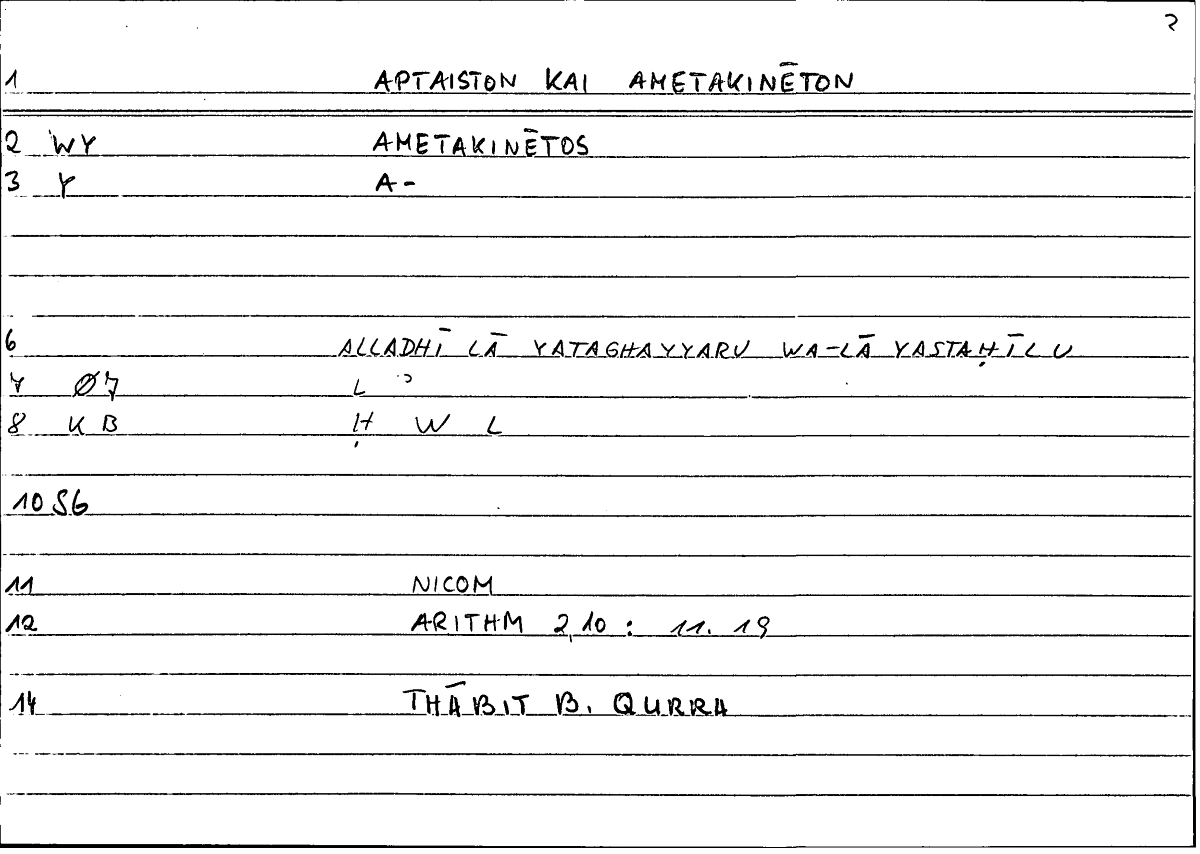 2
1 APTAISTON KAI AMETAKINĒTON
2 WY AMETAKINĒTOS
3 Y A-
6 ALLADHĪ LĀ YATAGHAYYARU WA-LĀ YASTAḤĪLU
7 Ø7 L ʾ
8 KB Ḥ W L
10 S6
11 NICOM
12 ARITHM 2,10 : 11. 19
14 THĀBIT B. QURRA